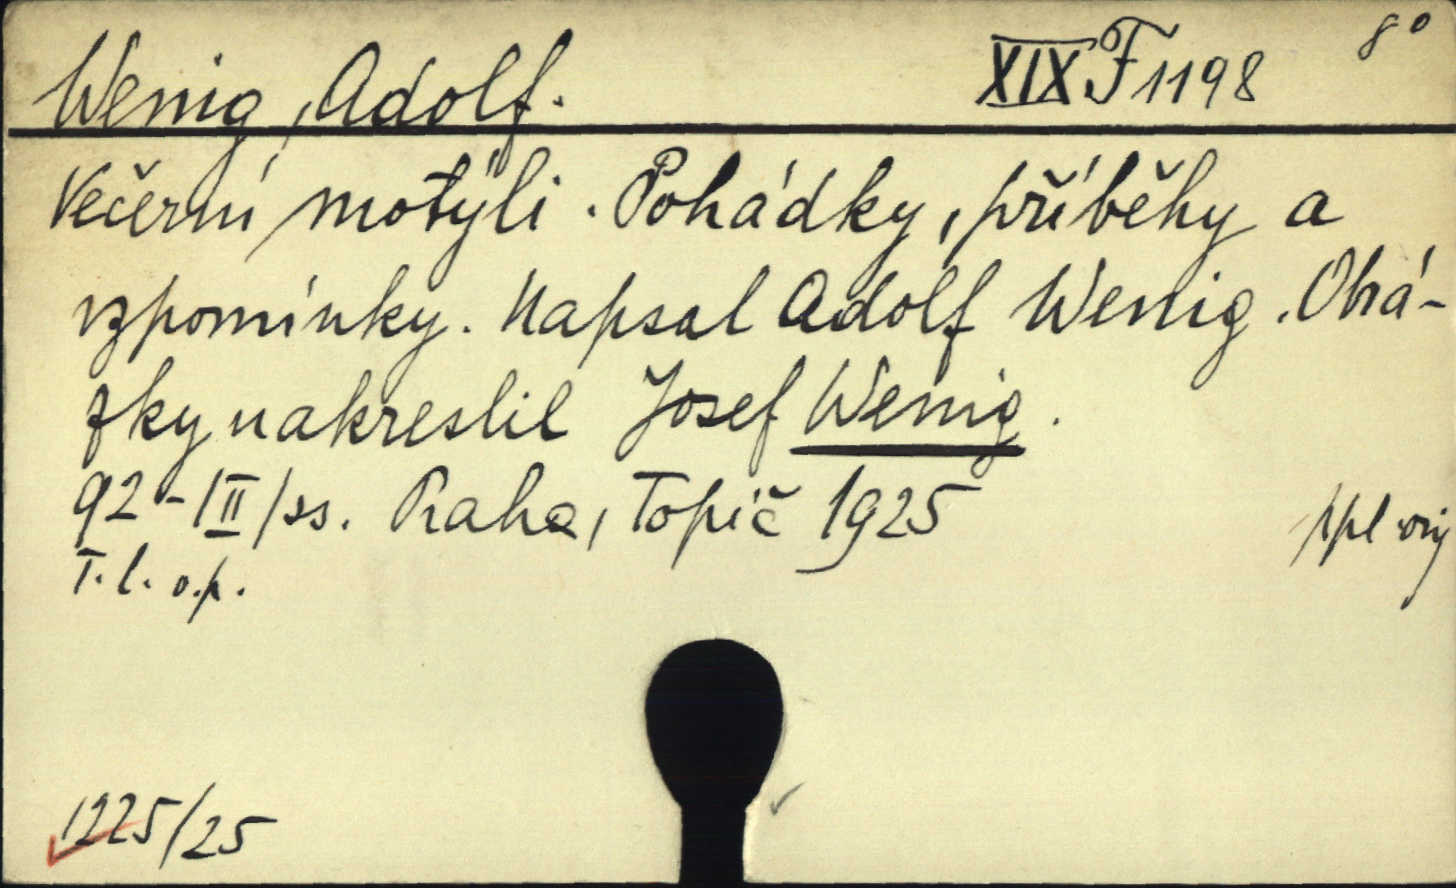 Wenig, Adolf. XIX F 1198 8°
Večerní motýli. Pohádky, příběhy a
vzpomínky. Napsal Adolf Wenig. Obrá-
zky nakreslil Josef Wenig.
92-/II/ss. Praha, Topič 1925
T. l. o.p.
1225/25